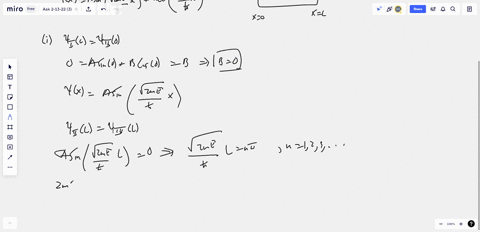 miro free Ask 2-13-22 (3)
Share
x=0 x=L
(i) Ψ_I(0) = Ψ_II(0)
0 = A sin(0) + B cos(0) = B ⇒ B=0
Ψ(x) = A sin(√2mE/ħ x)
Ψ_II(L) = Ψ_III(L)
A sin(√2mE/ħ L) = 0 ⇒ √2mE/ħ L = nπ , n=1,2,3,...
2m